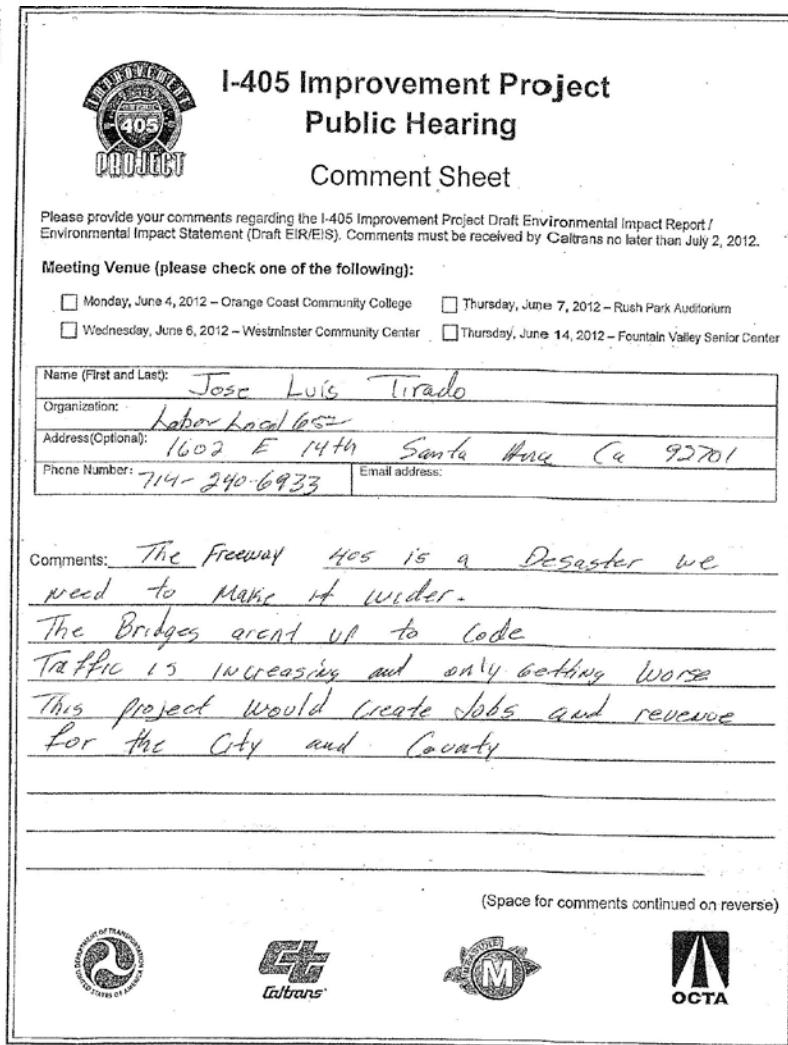 IMPROVEMENT
405
PROJECT
I-405 Improvement Project
Public Hearing
Comment Sheet
Please provide your comments regarding the I-405 Improvement Project Draft Environmental Impact Report /
Environmental Impact Statement (Draft EIR/EIS). Comments must be received by Caltrans no later than July 2, 2012.
Meeting Venue (please check one of the following):
Monday, June 4, 2012 – Orange Coast Community College
Thursday, June 7, 2012 – Rush Park Auditorium
Wednesday, June 6, 2012 – Westminster Community Center
Thursday, June 14, 2012 – Fountain Valley Senior Center
Name (First and Last): Jose Luis Tirado
Organization: Labor Local 652
Address(Optional): 1602 E 14th Santa Ana Ca 92701
Phone Number: 714-240-6933
Email address:
Comments: The Freeway 405 is a Desaster we
need to Make it wider.
The Bridges arent up to Code
Traffic is increasing and only Getting Worse
This project would Create Jobs and revenue
for the City and County
(Space for comments continued on reverse)
DEPARTMENT OF TRANSPORTATION
UNITED STATES OF AMERICA
Caltrans
MEASURE
M
OCTA